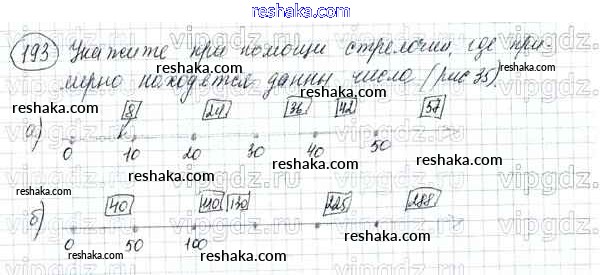 reshaka.com
193 Укажите при помощи стрелочки, где при-
мерно находятся данны числа (рис 35).
reshaka.com
reshaka.com reshaka.com
reshaka.com
8 24 36 42 57
а)
0 10 20 30 40 50
reshaka.com
reshaka.com
reshaka.com
40 110 130 225 288
б)
0 50 100
reshaka.com reshaka.com
reshaka.com
vipgdz.ru